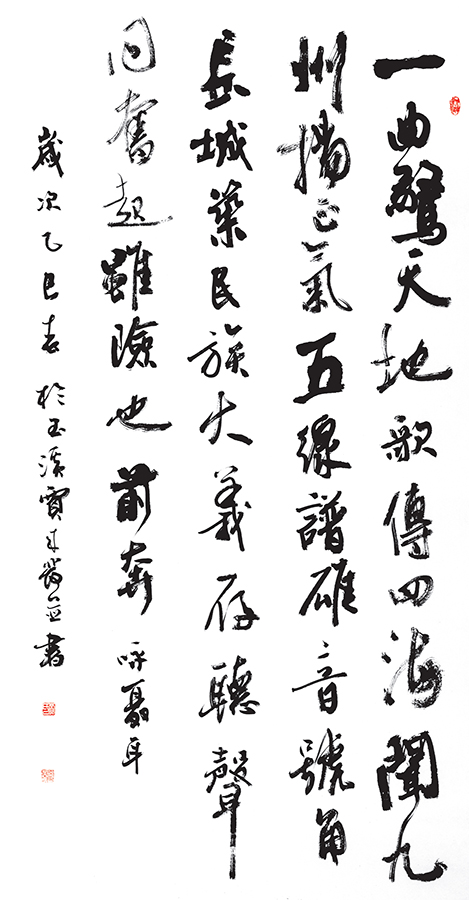 一曲驚天地歌傳四海聞九
州揚正氣五線譜雄音號角
長城築民族大義存聽聲
同奮起雖險也前奔 咏聶耳
歲次乙巳春於玉溪書